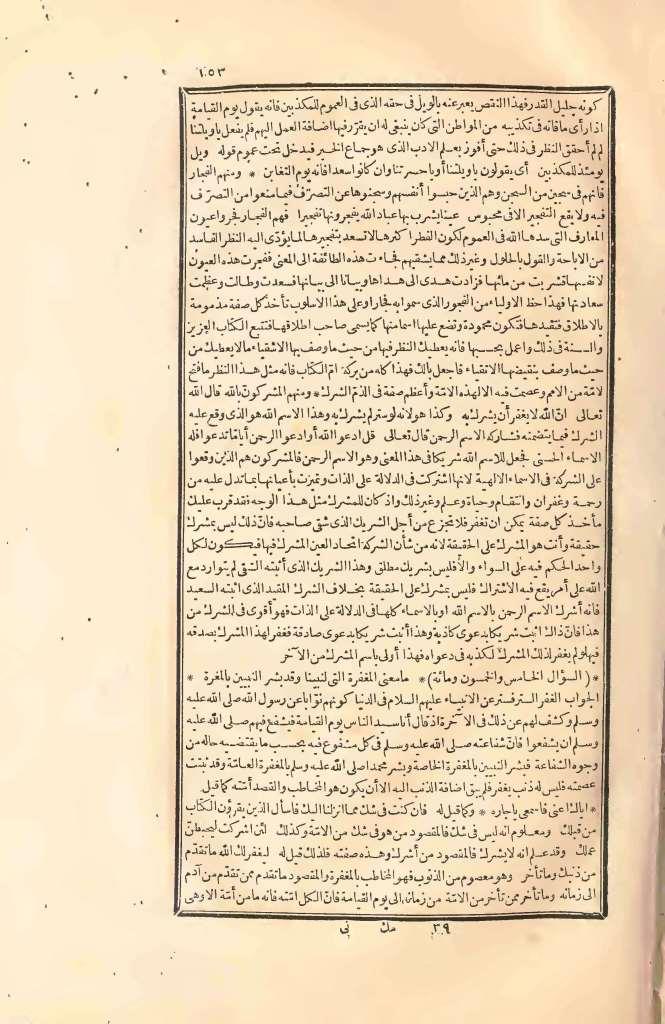 ١٠٥٣
كونه جليل القدر فهذا النقص يعبر عنه بالويل في حقه الذي في العموم للمكذبين فانه يقول يوم القيامة
اذا رأى ما فاته في تكذيبه من المواطن التي كان ينبغي له ان يقرر فيها اضافة العمل اليهم فلم يفعل ياويلتنا
لم لم أحقق النظر في ذلك حتى أفوز بعلم الادب الذي هو جماع الخير فيدخل تحت عموم قوله ويل
يومئذ للمكذبين أى يقولون ياويلتنا أو ياحسرتنا وان كانوا سعداء فانه يوم التغابن * ومنهم الفجار
فانهم في سجين من السجن وهم الذين حبسوا أنفسهم وسجنوها عن التصرّف فيما منعوا من التصرّف
فيه ولا يقع التفجير الا في محبوس عينا يشرب بها عباد الله يفجرونها تفجيرا فهم الفجار فجروا عيون
المعارف التي سدها الله في العموم لكون الفطر أكثرها لا تسعد بتفجيرها لما يؤدّى اليه النظر الفاسد
من الاباحة والقول بالحلول وغير ذلك مما يشقيهم فجاءت هذه الطائفة الى المعنى ففجرت هذه العيون
لانفسها فشربت من مائها فزادت هدى الى هداها وبيانا الى بيانها فسعدت وطالت وعظمت
سعادتها فهذا حظ الاولياء من الفجور الذي سموا به فجارا وعلى هذا الاسلوب تأخذ كل صفة مذمومة
بالاطلاق فتقيدها فتكون محمودة وتضع عليها اسما منها كما يسمى صاحب اطلاقها فتتبع الكتاب العزيز
والسنة في ذلك واعمل بحسبها فانه يعطيك النظر فيها من حيث ما وصف بها الاشقياء مالا يعطيك من
حيث ما وصف بنقيضها الاتقياء فاجعل بالك فهذا كله من بركة أمّ الكتاب فانه مثل هذا النظر ما فتح
لامّة من الامم وعصمت فيه الا لهذه الامّة وأعظم صفة في الذمّ الشرك * ومنهم المشركون بالله قال الله
تعالى انّ الله لا يغفر أن يشرك به وكذا هو لانه لو ستر لم يشرك به وهذا الاسم الله هو الذي وقع عليه
الشرك فيما يتضمنه فشاركه الاسم الرحمن قال تعالى قل ادعوا الله أو ادعوا الرحمن أياما تدعوا فله
الاسماء الحسنى فجعل للاسم الله شريكا في هذا المعنى وهو الاسم الرحمن فالمشركون هم الذين وقعوا
على الشركة في الاسماء الالهية لانها اشتركت في الدلالة على الذات وتميزت بأعيانها بما تدل عليه من
رحمة وغفران وانتقام وحياة وعلم وغير ذلك واذ كان للمشرك مثل هذا الوجه فقد قرب عليك
مأخذ كل صفة يمكن ان تغفر فلا تجزع من أجل الشريك الذي شقى صاحبه فانّ ذلك ليس بمشرك
حقيقة وأنت هو المشرك على الحقيقة لانه من شأن الشركة اتحاد العين المشرك فيها فيكون لكل
واحد الحكم فيه على السواء والا فليس بشريك مطلق وهذا الشريك الذي أثبته الشقى لم يتوارد مع
الله على أمر يقع فيه الاشتراك فليس بمشرك على الحقيقة بخلاف الشرك المقيد الذي اثبته السعيد
فانه أشرك الاسم الرحمن بالاسم الله او بالاسماء كلها في الدلالة على الذات فهو أقوى في الشرك من
هذا فانّ ذاك اثبت شريكا بدعوى كاذبة وهذا أثبت شريكا بدعوى صادقة فغفر لهذا المشرك بصدقه
فيها ولم يغفر لذلك المشرك لكذبه في دعواه فهذا أولى باسم المشرك من الآخر
* (السؤال الخامس والخمسون ومائة) * ما معنى المغفرة التي لنبينا وقد بشر النبيين بالمغفرة *
الجواب الغفر الستر فستر عن الانبياء عليهم السلام في الدنيا كونهم نوّابا عن رسول الله صلى الله عليه
وسلم وكشف لهم عن ذلك في الآخرة اذ قال أنا سيد الناس يوم القيامة فيشفع فيهم صلى الله عليه
وسلم ان يشفعوا فانّ شفاعته صلى الله عليه وسلم في كل مشفوع فيه بحسب ما يقتضيه حاله من
وجوه الشفاعة فبشر النبيين بالمغفرة الخاصة وبشر محمدا صلى الله عليه وسلم بالمغفرة العامّة وقد ثبتت
عصمته فليس له ذنب يغفر فلم يبق اضافة الذنب اليه الا أن يكون هو المخاطب والقصد أمّته كما قيل
* اياك أعنى فاسمعى ياجاره * وكما قيل له فان كنت في شك مما انزلنا اليك فاسأل الذين يقرؤن الكتاب
من قبلك ومعلوم انه ليس في شك فالمقصود من هو في شك من الامّة وكذلك لئن اشركت ليحبطنّ
عملك وقد علم انه لا يشرك فالمقصود من أشرك وهذه صفته فلذلك قيل له ليغفر لك الله ما تقدّم
من ذنبك وما تأخر وهو معصوم من الذنوب فهو المخاطب بالمغفرة والمقصود ما تقدم ممن تقدّم من آدم
الى زمانه وما تأخر ممن تأخر من الامّة من زمانه الى يوم القيامة فانّ الكل امّته فانه ما من أمّة الا وهى
٣٩ مك نى